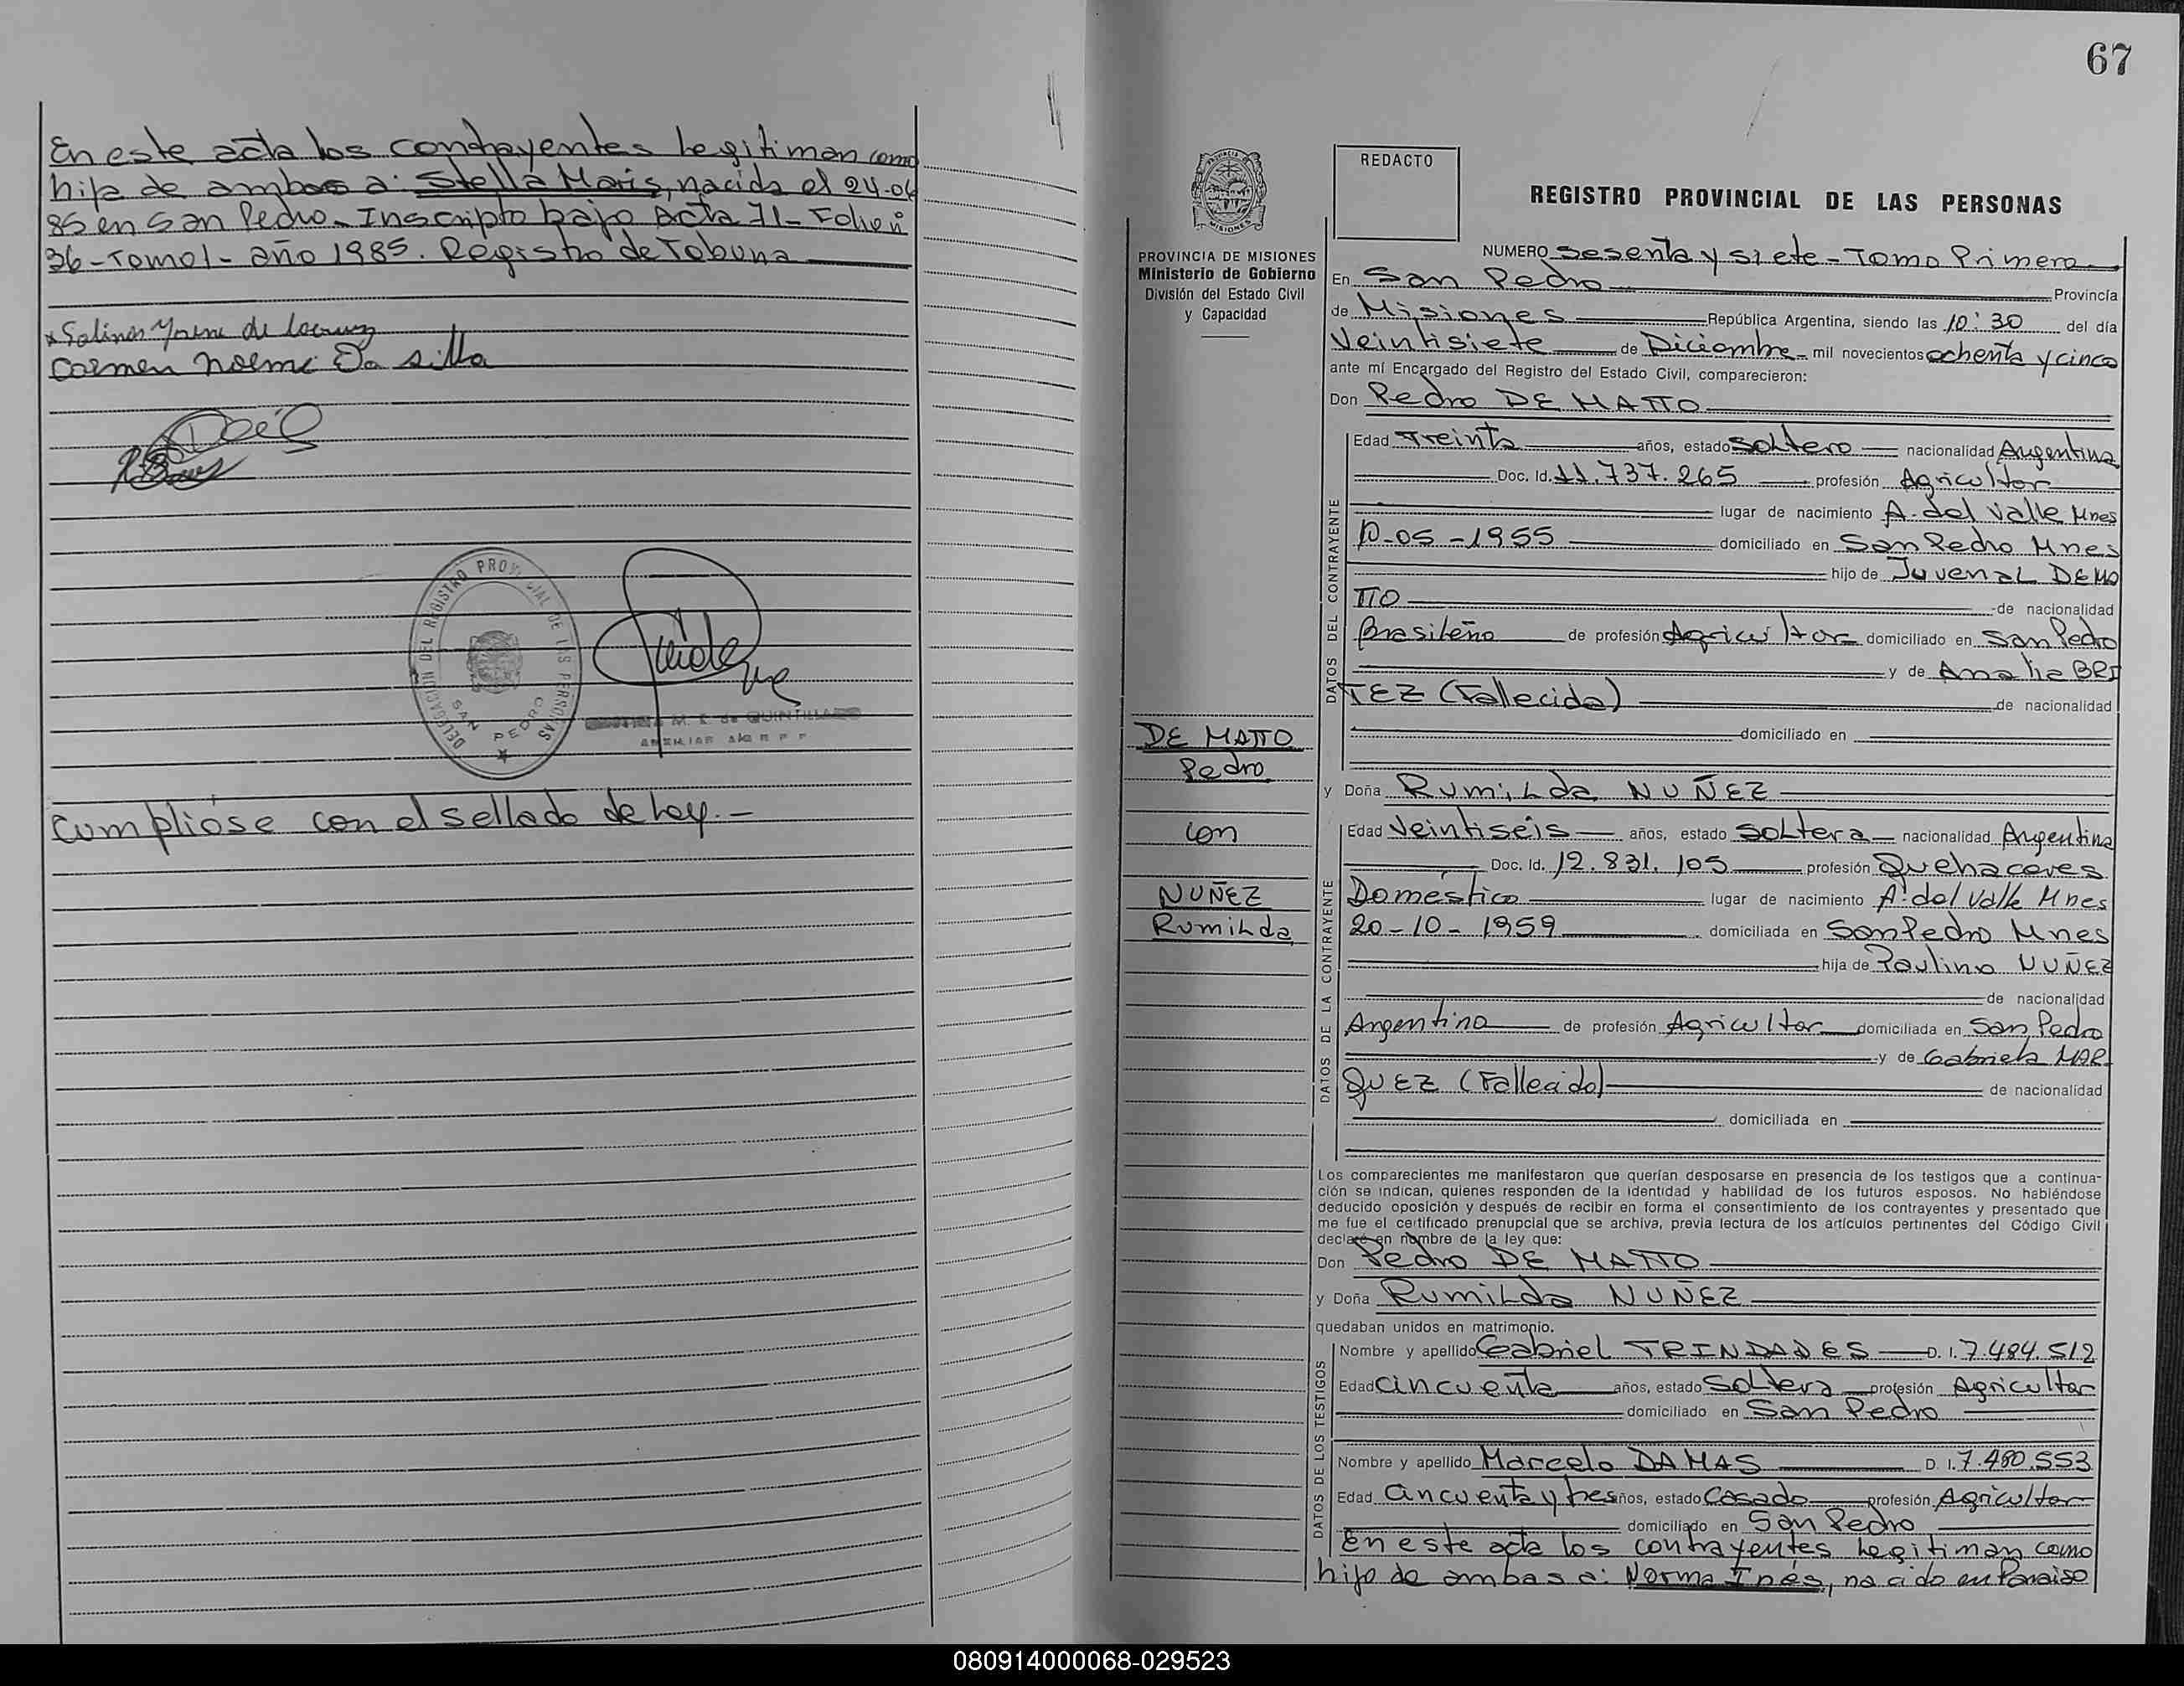 En este acta los contrayentes Legitiman como
hija de ambos a: Stella Maris, nacida el 24-06
85 en San Pedro. Inscripto bajo Acta 71- Folio nº
36-Tomo 1- año 1985. Registro de Tobuna
Carmen Noemi Da Silva
DELEGACION DEL REGISTRO PROVINCIAL DE LAS PERSONAS
SAN PEDRO
M. E. de QUINTILLAN
Cumplióse con el sellado de ley.-
67
REDACTO
REGISTRO PROVINCIAL DE LAS PERSONAS
MISIONES
PROVINCIA DE MISIONES
Ministerio de Gobierno
División del Estado Civil
y Capacidad
DE MATTO
Pedro
con
NUÑEZ
RumiLda
NUMERO Sesenta y siete - Tomo Primero
En San Pedro Provincia
de Misiones República Argentina, siendo las 10'30 del día
Veintisiete de Diciembre mil novecientos ochenta y cinco
ante mí Encargado del Registro del Estado Civil, comparecieron:
Don Pedro DE MATTO
DATOS DEL CONTRAYENTE
Edad Treinta años, estado Soltero nacionalidad Argentina
Doc. Id. 11.737.265 profesión Agricultor
lugar de nacimiento A. del Valle Mnes
10-05-1955 domiciliado en San Pedro Mnes
hijo de JuvenaL DEMA
TTO de nacionalidad
Brasileño de profesión Agricultor domiciliado en San Pedro
y de Analia BRI
TEZ (Fallecida) de nacionalidad
domiciliado en
y Doña RumiLda NUÑEZ
DATOS DE LA CONTRAYENTE
Edad Veintiseis años, estado Soltera nacionalidad Argentina
Doc. Id. 12.831.105 profesión Quehaceres
Doméstico lugar de nacimiento A. del Valle Mnes
20-10-1959 domiciliada en San Pedro Mnes
hija de Paulino NUÑEZ
de nacionalidad
Argentino de profesión Agricultor domiciliada en San Pedro
y de Gabriela MAR
QUEZ (Fallecida) de nacionalidad
domiciliada en
Los comparecientes me manifestaron que querían desposarse en presencia de los testigos que a continua-
ción se indican, quienes responden de la identidad y habilidad de los futuros esposos. No habiéndose
deducido oposición y después de recibir en forma el consentimiento de los contrayentes y presentado que
me fue el certificado prenupcial que se archiva, previa lectura de los artículos pertinentes del Código Civil
declaré en nombre de la ley que:
Don Pedro DE MATTO
y Doña RumiLda NUÑEZ
quedaban unidos en matrimonio.
DATOS DE LOS TESTIGOS
Nombre y apellido Gabriel TRINDADES D. I. 7.484.512
Edad Cincuenta años, estado Soltera profesión Agricultor
domiciliado en San Pedro
Nombre y apellido Marcelo DAMAS D. I. 7.480.553
Edad Cincuenta y tres años, estado Casado profesión Agricultor
domiciliado en San Pedro
En este acta los contrayentes Legitiman como
hijo de ambos a: Norma Inés, nacida en Paraiso
080914000068-029523